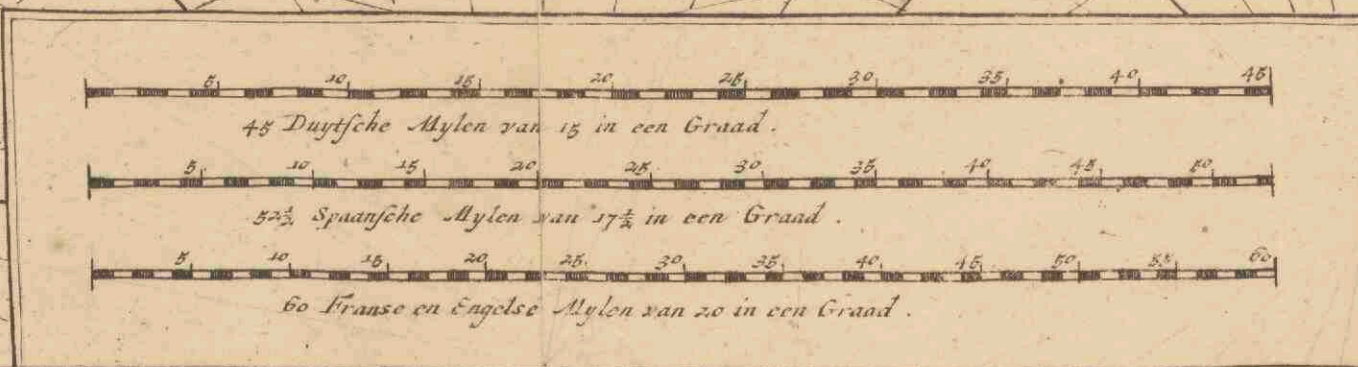 5 10 15 20 25 30 35 40 45
45 Duytsche Mylen van 15 in een Graad.
5 10 15 20 25 30 35 40 45 50
52½ Spaansche Mylen van 17½ in een Graad.
5 10 15 20 25 30 35 40 45 50 55 60
60 Franse en Engelse Mylen van 20 in een Graad.